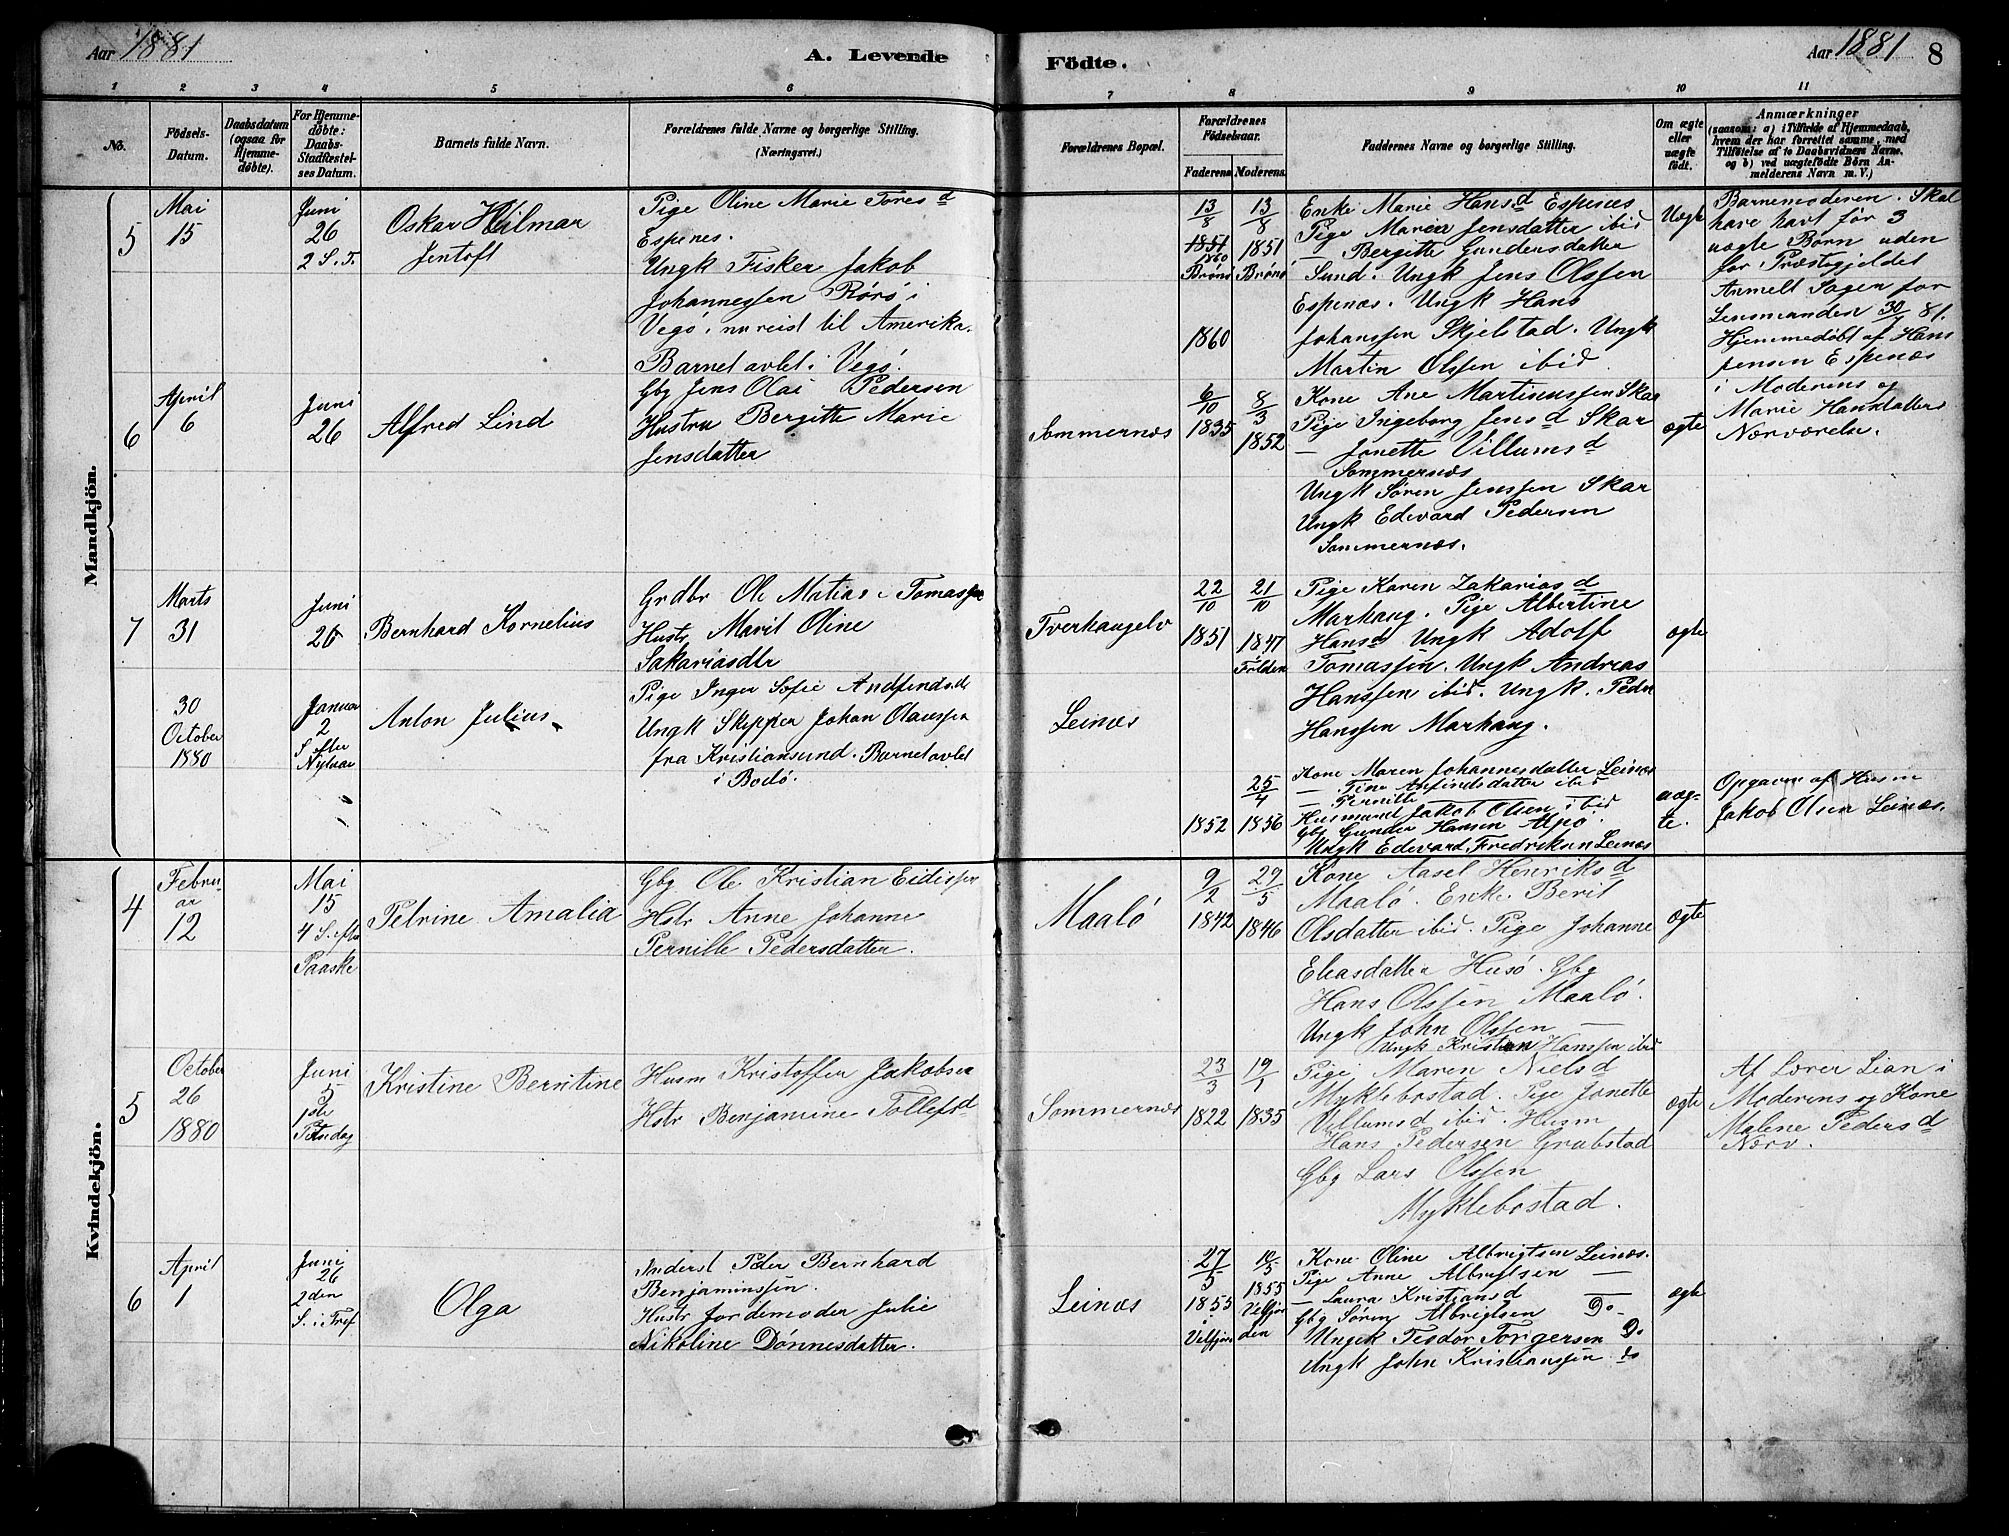 Aar 1881
A. Levende
Födte.
Aar 1881
8
1 2 3 4 5 6 7 8 9 10 11
No.
Födsels-Datum.
Daabsdatum (ogsaa for Hjemme-døbte).
For Hjemme-døbte: Daabs-Stadfæstel-ses Datum.
Barnets fulde Navn.
Forældrenes fulde Navne og borgerlige Stilling.
(Næringsvei.)
Forældrenes Bopæl.
Forældrenes Födselsaar.
Faderens Moderens
Faddernes Navne og borgerlige Stilling.
Om ægte eller uægte født.
Anmærkninger
(saasom: a) i Tilfælde af Hjemmedaab, hvem der har forrettet samme, med Tilføielse af to Daabsvidners Navne, og b) ved uægtefödte Börn An-melderens Navn m. V.)
Mandkjön.
5
Mai
15
Juni
26
2 S. T.
Oskar Hilmar
Jentoft
Pige Oline Marie Tores d
Espenes.
Ungk Fisker Jakob
Johannessen Rørø i
Vegö, nu reist til Amerika.
Barnet avlet i Vegö.
13/8
1851
1860
Brönö
1860
13/8
1851
Brönö
Enke Marie Hansd Espenes
Pige Maren Jensdatter ibid
— Bergitte Gundersdatter
Sund. Ungk Jens Olssen
Espenæs. Ungk Hans
Johanssen Skjelstad. Ungk
Martin Olssen ibid
Uægte
Barnemoderen. Skal
have havt før 3
uægte Börn uden
for Præstegjeldet
Anmelt Sagen for
Lensmanden 30/7 81.
Hjemmedøbt af Hans
Jensen Espenæs
i Moderens og
Marie Hansdatters
Nærværelse.
6
April
6
Juni
26
Alfred Lind
Gbg Jens Olai Pedersen
Hustru Bergitte Marie
Jensdatter
Sommernæs
6/10
1835
8/3
1852
Kone Ane Martinussen Skar
Pige Ingeborg Jensd Skar
— Jonette Villumsd
Sommernæs
Ungk Søren Jenssen Skar
Ungk Edvard Pedersen
Sommernæs.
ægte
7
Marts
31
Juni
26
Bernhard Kornelius
Grdbr Ole Matias Tomassen
Hustr Marit Oline
Sakariasdtr
Tverhangelv
22/10
1851
21/10
1847
Folden
Pige Karen Zakarias d
Marhaug. Pige Albertine
Hansd Ungk Adolf
Tomassen. Ungk Andreas
Hanssen ibid. Ungk. Peder
Hanssen Marhaug.
ægte
30
October
1880
Januar
2
S efter
Nytaar
Anton Julius
Pige Inger Sofie Andfinds.d.
Ungk Skipper Johan Olaussen
fra Kristiansund. Barnet avlet
i Bodö.
Leinæs
1852
25/4
1856
Kone Maren Johannesdatter Leinæs
— Tina Anfindsdatter ibid
— Pernille
Husmand Jakob Olsen ibid
Gbg Gunder Hansen Alpö
Ungk Edvard Fredriksen Leinæs
uæg-
te.
Opgaven af Husm
Jakob Olsen Leinæs.
Kvindekjön.
4
Febru
ar
12
Mai
15
4 S. efter
Paaske
Petrine Amalia
Gbg Ole Kristian Eidissen
Hstr Anne Johanne
Pernille Pedersdatter.
Maalö
9/2
1842
29/5
1846
Kone Aasel Henriks d
Maalö. Enke Berit
Olsdatter ibid. Pige Johanne
Eliasdatter Husö. Gbg
Hans Olssen Maalö.
Ungk John Olssen —
Ungk Kristian Hanssen ibid
ægte
5
October
26
1880
Juni
5
1ste
Pinsdag
Kristine Berntine
Husm Kristoffer Jakobsen
Hstr Benjamine Tollefsd
Sommernæs
23/3
1822
19/1
1835
Pige Maren Nielsd
Myklebostad. Pige Jonette
Villumsd ibid. Husm
Hans Pedersen Grubstad
Gbg Lars Olssen
Myklebostad.
ægte
Af Lærer Lian i
Moderens og Kone
Malene Peders d
Nærv.
6
April
1
Juni
26
2den
S. i Tref
Olga
Inderst Peder Bernhard
Benjaminssen.
Hustr Jordemoder Julie
Nikoline Dønnesdatter.
Leinæs
27/5
1855
Velfjor
10/5
1855
Velfjor
den
Kone Oline Albrigtsen Leinæs.
Pige Anne Albrigtsen —
— Laura Kristiansd —
Gbg Søren Albrigtsen Do-
Ungk Teodor Torgersen Do
Ungk John Kristianssen do
ægte